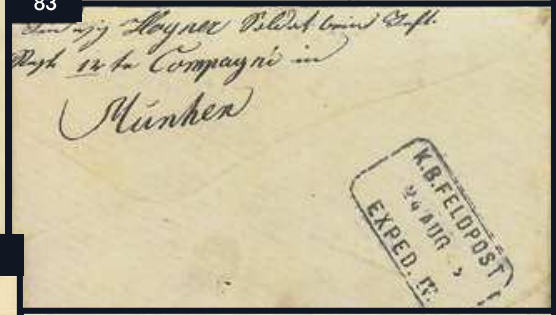 83
Hayner Soldat beim Inft.
Regt 12te Compagni in
Münhen
K.B.FELDPOST
24 AUG
EXPED. IV.